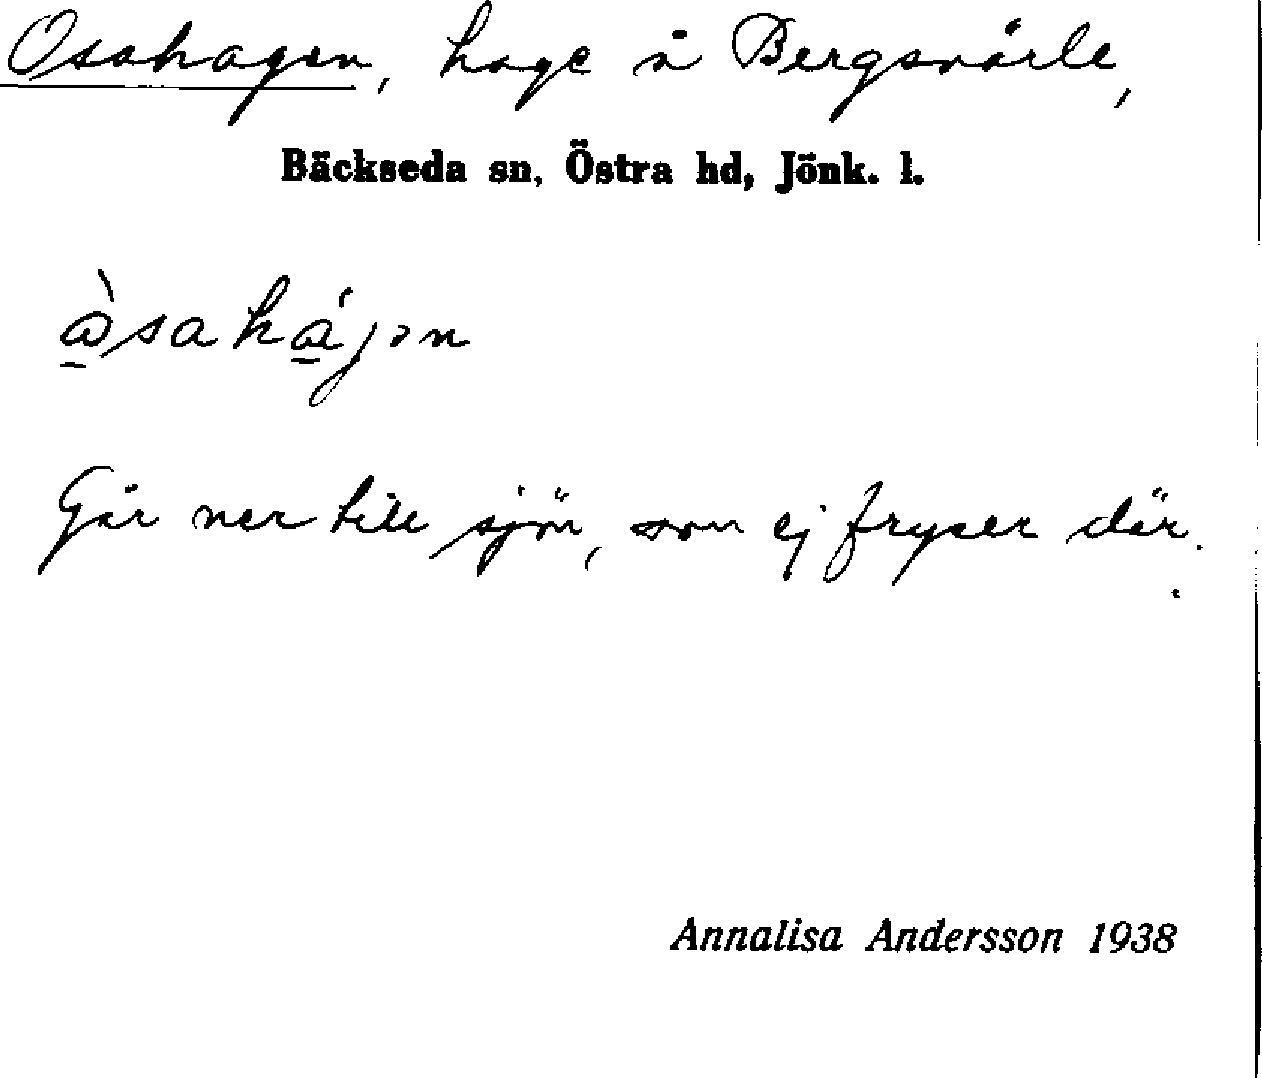 Osahagen, hage å Bergsnårle,
Bäckseda sn, Östra hd, Jönk. l.
ὰsahájən
Går ner till sjön, som ej fryser där.
Annalisa Andersson 1938